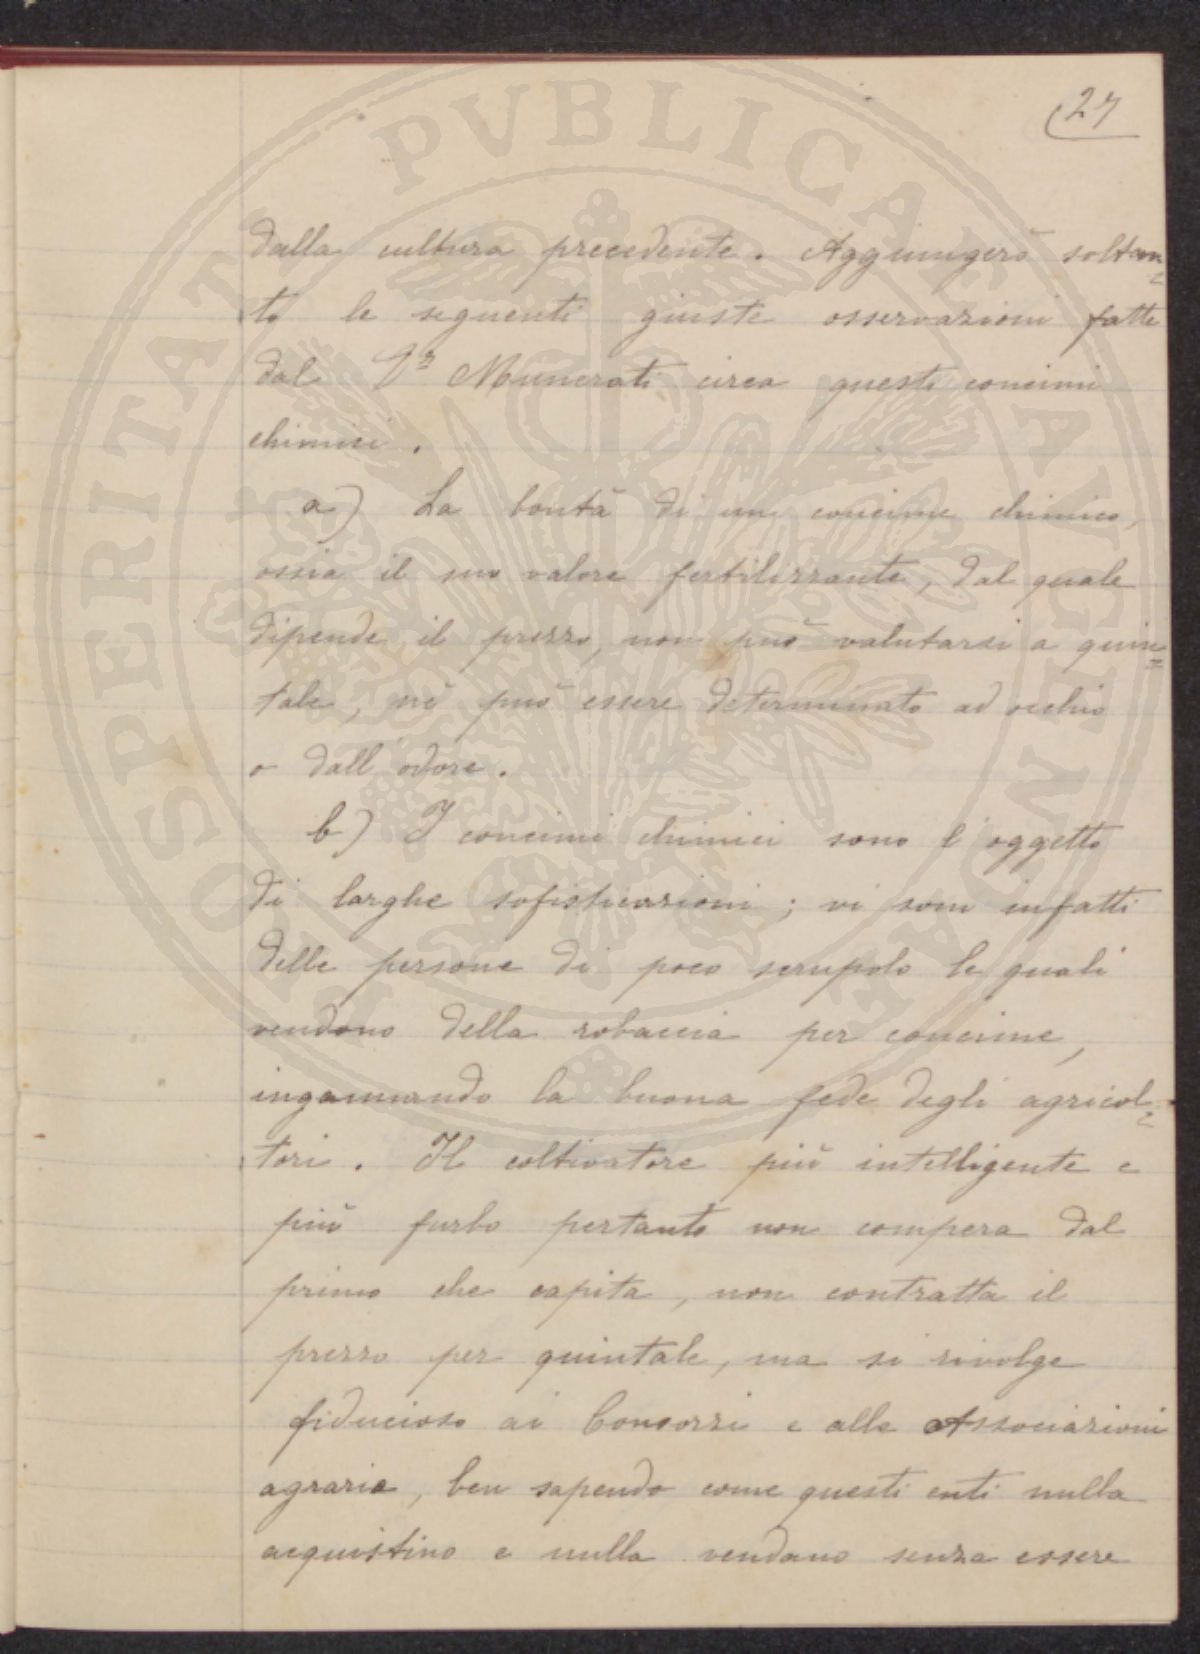 27
dalla cultura precedente. Aggiungerò soltan=
to le seguenti giuste osservazioni fatte
dal Dr Munerati circa questi concimi
chimici.
a) La bontà di un concime chimico,
ossia il suo valore fertilizzante, dal quale
dipende il prezzo, non può valutarsi a quin=
tale, nè può essere determinato ad occhio
o dall'odore.
b) I concimi chimici sono l'oggetto
di larghe sofisticazioni; vi sono infatti
delle persone di poco scrupolo le quali
vendono della robaccia per concime,
ingannando la buona fede degli agricol=
tori. Il coltivatore più intelligente e
più furbo pertanto non compera dal
primo che capita, non contratta il
prezzo per quintale, ma si rivolge
fiducioso ai Consorzi e alle Associazioni
agrarie, ben sapendo come questi enti nulla
acquistino e nulla vendano senza essere
PROSPERITATI PVBLICAE AVGENDAE